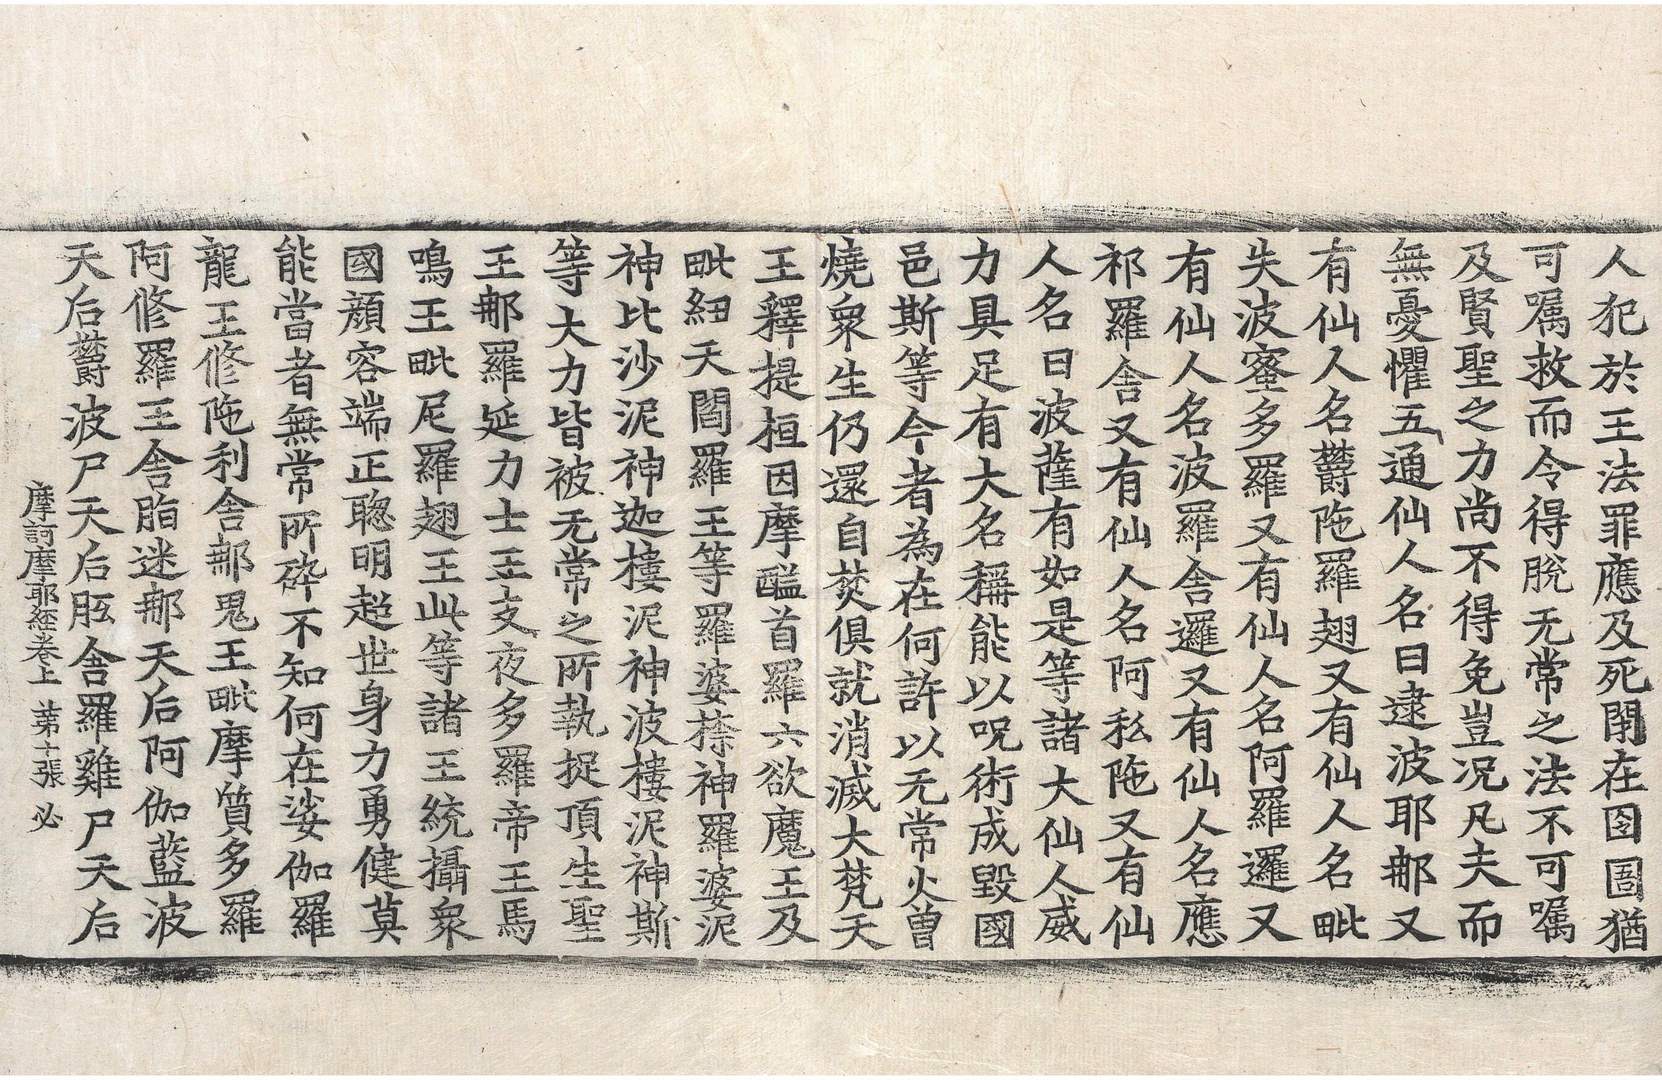 人犯於王法罪應及死閇在囹圄猶
可囑救而令得脫无常之法不可囑
及賢聖之力尚不得免豈况凡夫而
無憂懼五通仙人名曰逮波耶那又
有仙人名欝陁羅翅又有仙人名毗
失波蜜多羅又有仙人名阿羅邏又
有仙人名波羅舍邏又有仙人名應
祁羅舍又有仙人名阿私陁又有仙
人名曰波薩有如是等諸大仙人威
力具足有大名稱能以呪術成毀國
邑斯等今者為在何許以无常火曾
燒衆生仍還自焚俱就消滅大梵天
王釋提桓因摩醯首羅六欲魔王及
毗紐天閻羅王等羅婆㮈神羅婆泥
神比沙泥神迦樓泥神波樓泥神斯
等大力皆被无常之所執捉頂生聖
王那羅延力士王支夜多羅帝王馬
鳴王毗尼羅翅王此等諸王統攝衆
國顔容端正聦明超世身力勇健莫
能當者無常所碎不知何在娑伽羅
龍王修陁利舍那鬼王毗摩質多羅
阿修羅王舍脂迷那天后阿伽藍波
天后欝波尸天后胝舍羅雞尸天后
摩訶摩耶経卷上 第十張 必